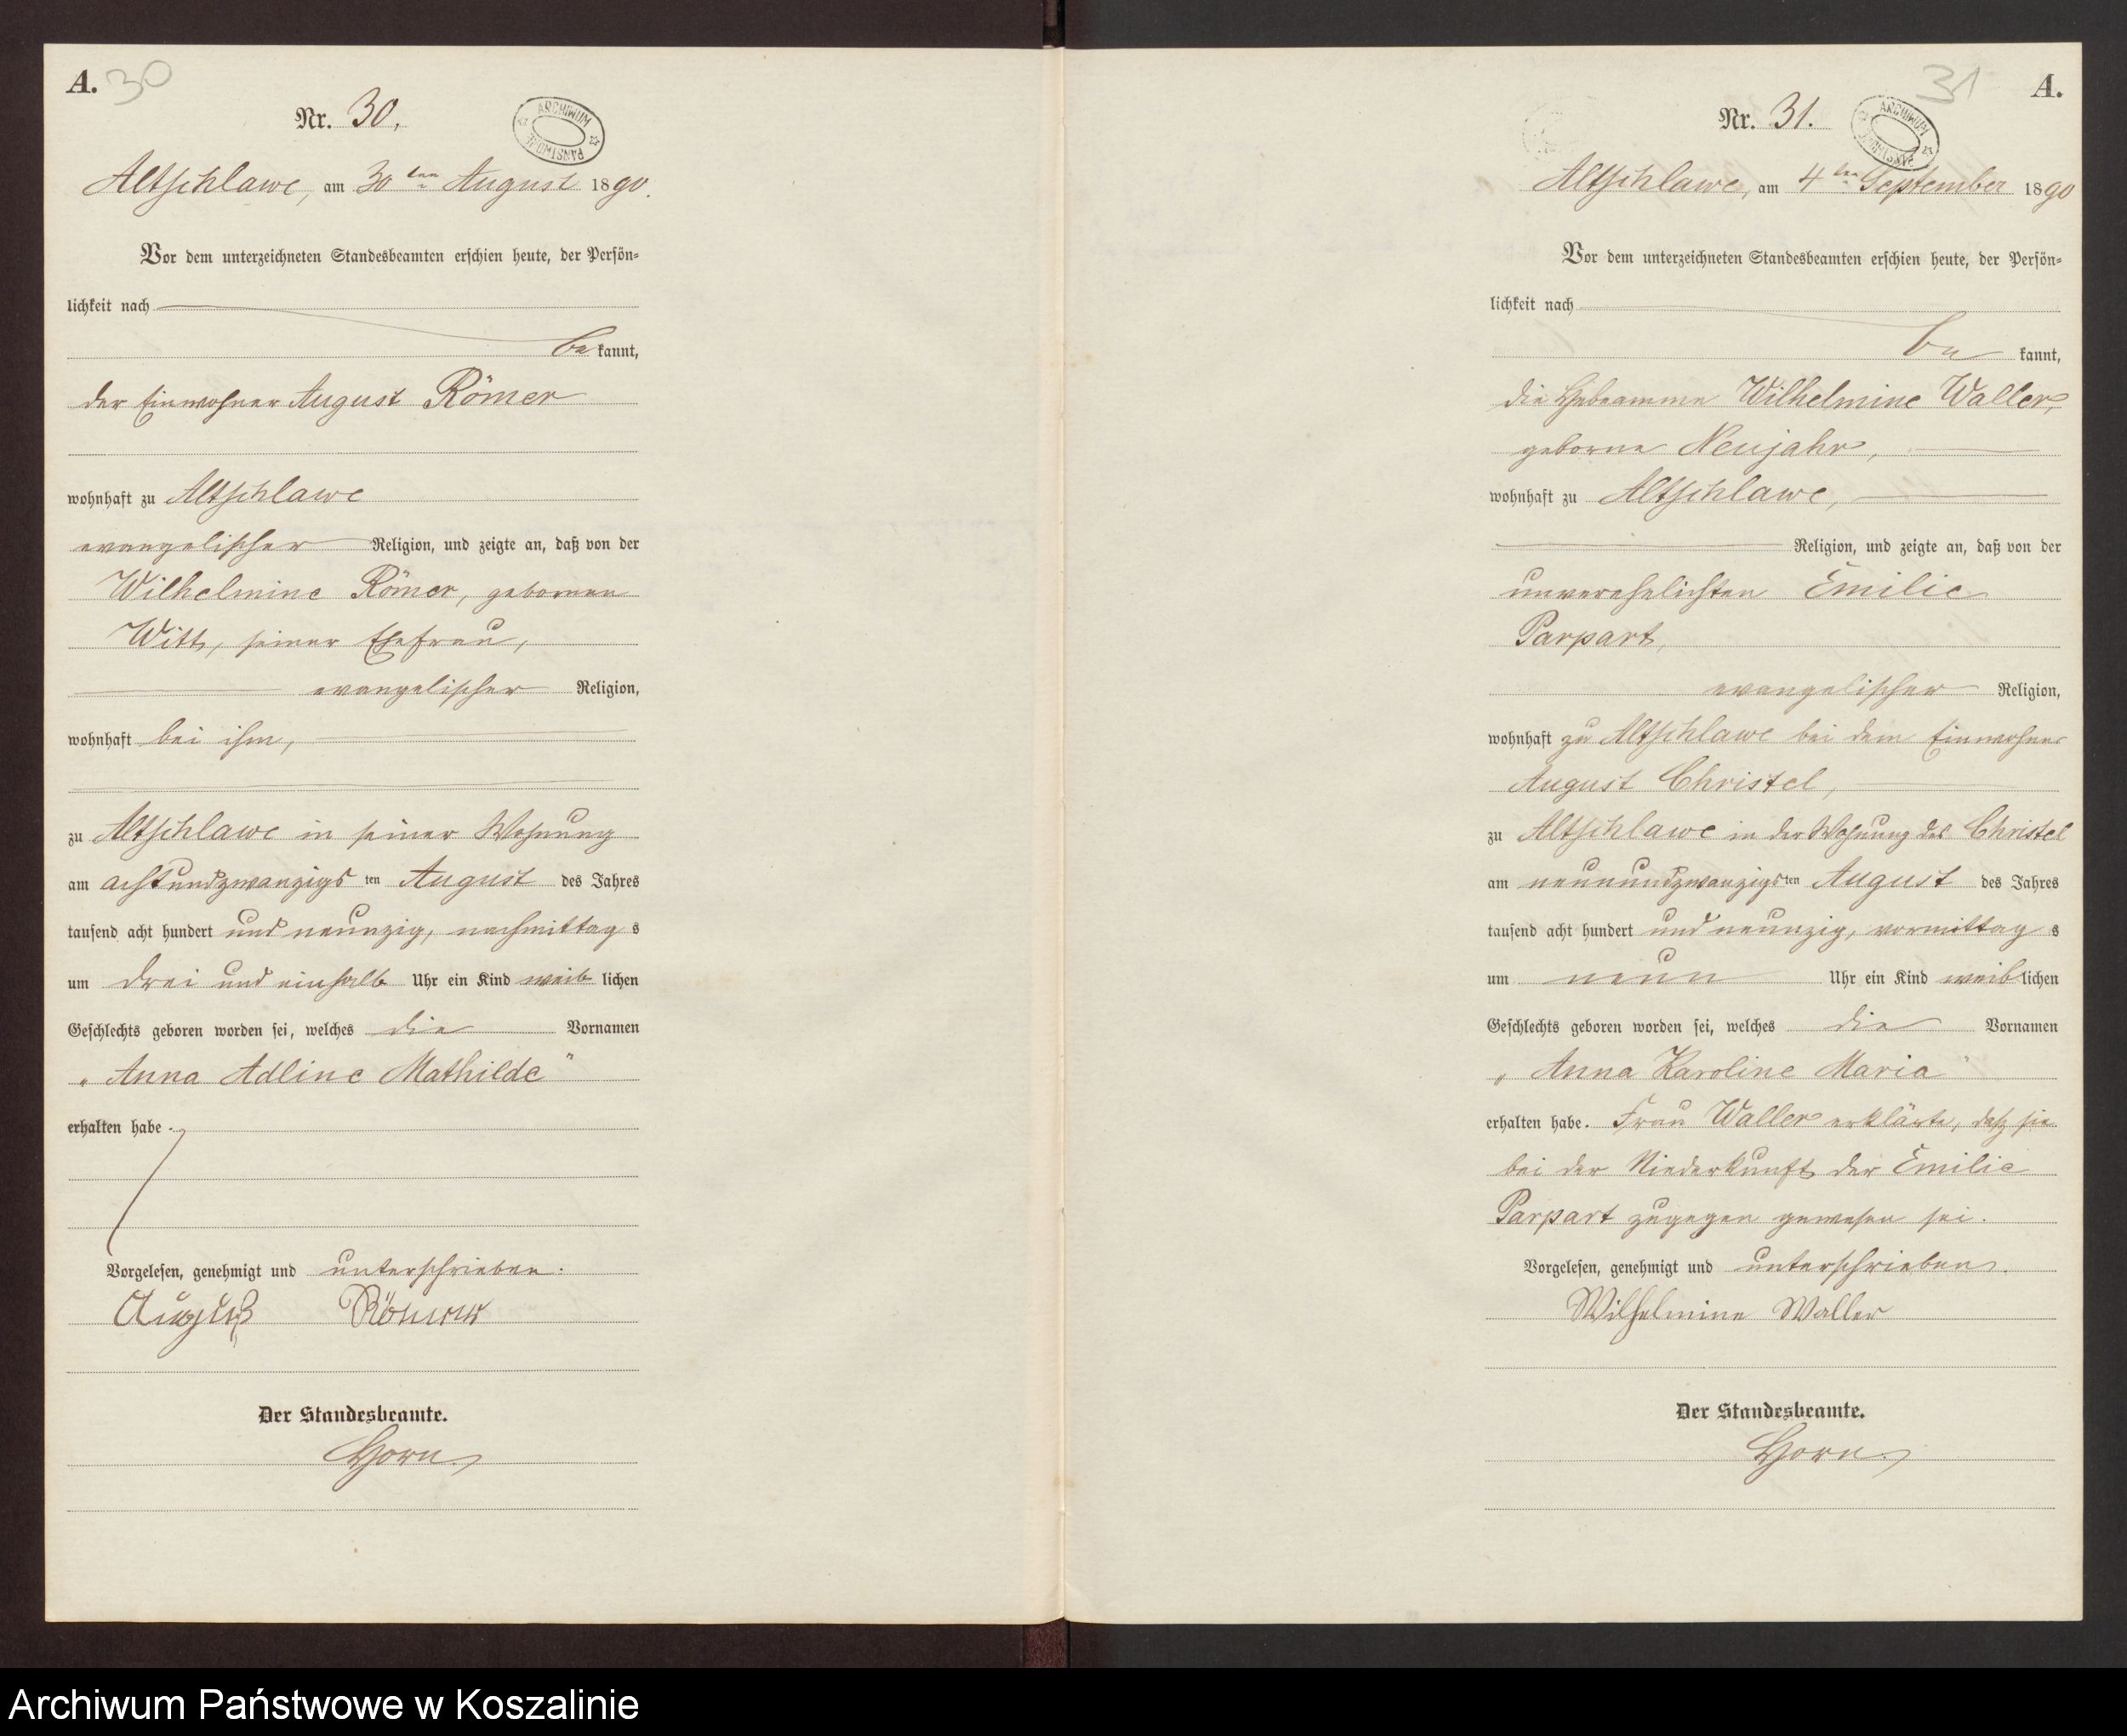 A. 30
Nr. 30.
ARCHIWUM PAŃSTWOWE
Altschlawe, am 30ten August 1890.
Vor dem unterzeichneten Standesbeamten erschien heute, der Persön-
lichkeit nach
bekannt,
der Einwohner August Römer
wohnhaft zu Altschlawe
evangelischer Religion, und zeigte an, daß von der
Wilhelmine Römer, gebornen
Witt, seiner Ehefrau,
evangelischer Religion,
wohnhaft bei ihm,
zu Altschlawe in seiner Wohnung
am achtundzwanzigsten August des Jahres
tausend acht hundert und neunzig, nachmittags
um drei und einhalb Uhr ein Kind weiblichen
Geschlechts geboren worden sei, welches die Vornamen
„Anna Adline Mathilde"
erhalten habe.
Vorgelesen, genehmigt und unterschrieben.
August Römer
Der Standesbeamte.
Horn.
31 A.
Nr. 31.
ARCHIWUM PAŃSTWOWE
Altschlawe, am 4ten September 1890
Vor dem unterzeichneten Standesbeamten erschien heute, der Persön-
lichkeit nach
bekannt,
die Hebeamme Wilhelmine Waller,
geborne Neujahr,
wohnhaft zu Altschlawe,
Religion, und zeigte an, daß von der
unverehelichten Emilie
Parpart,
evangelischer Religion,
wohnhaft zu Altschlawe bei dem Einwohner
August Christel,
zu Altschlawe in der Wohnung des Christel
am neunundzwanzigsten August des Jahres
tausend acht hundert und neunzig, vormittags
um neun Uhr ein Kind weiblichen
Geschlechts geboren worden sei, welches die Vornamen
„Anna Karoline Maria"
erhalten habe. Frau Waller erklärte, daß sie
bei der Niederkunft der Emilie
Parpart zugegen gewesen sei.
Vorgelesen, genehmigt und unterschrieben.
Wilhelmine Waller
Der Standesbeamte.
Horn.
Archiwum Państwowe w Koszalinie